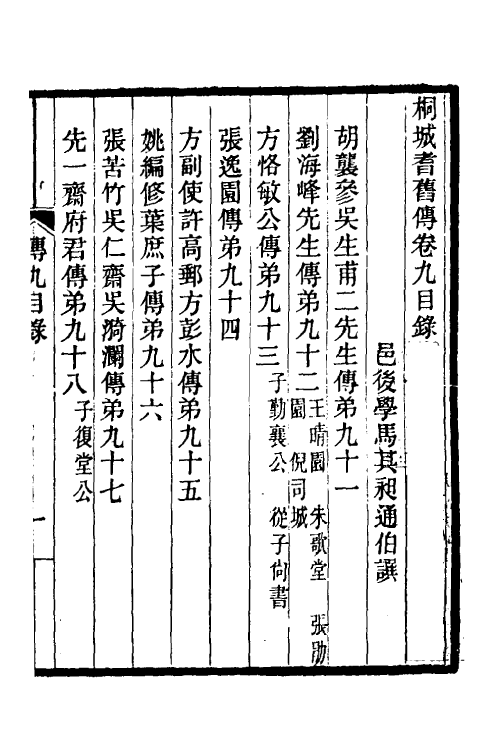 桐城耆舊傳卷九目錄
邑後學馬其昶通伯譔
胡襲參吳生甫二先生傳弟九十一
劉海峰先生傳弟九十二 王晴園 朱歌堂 張勛園 倪司城
方恪敏公傳弟九十三 子勤襄公 從子尙書
張逸園傳弟九十四
方副使許高郵方彭水傳弟九十五
姚編修葉庶子傳弟九十六
張苦竹吳仁齋吳漪瀾傳弟九十七
先一齋府君傳弟九十八 子復堂公
傳九目錄
一